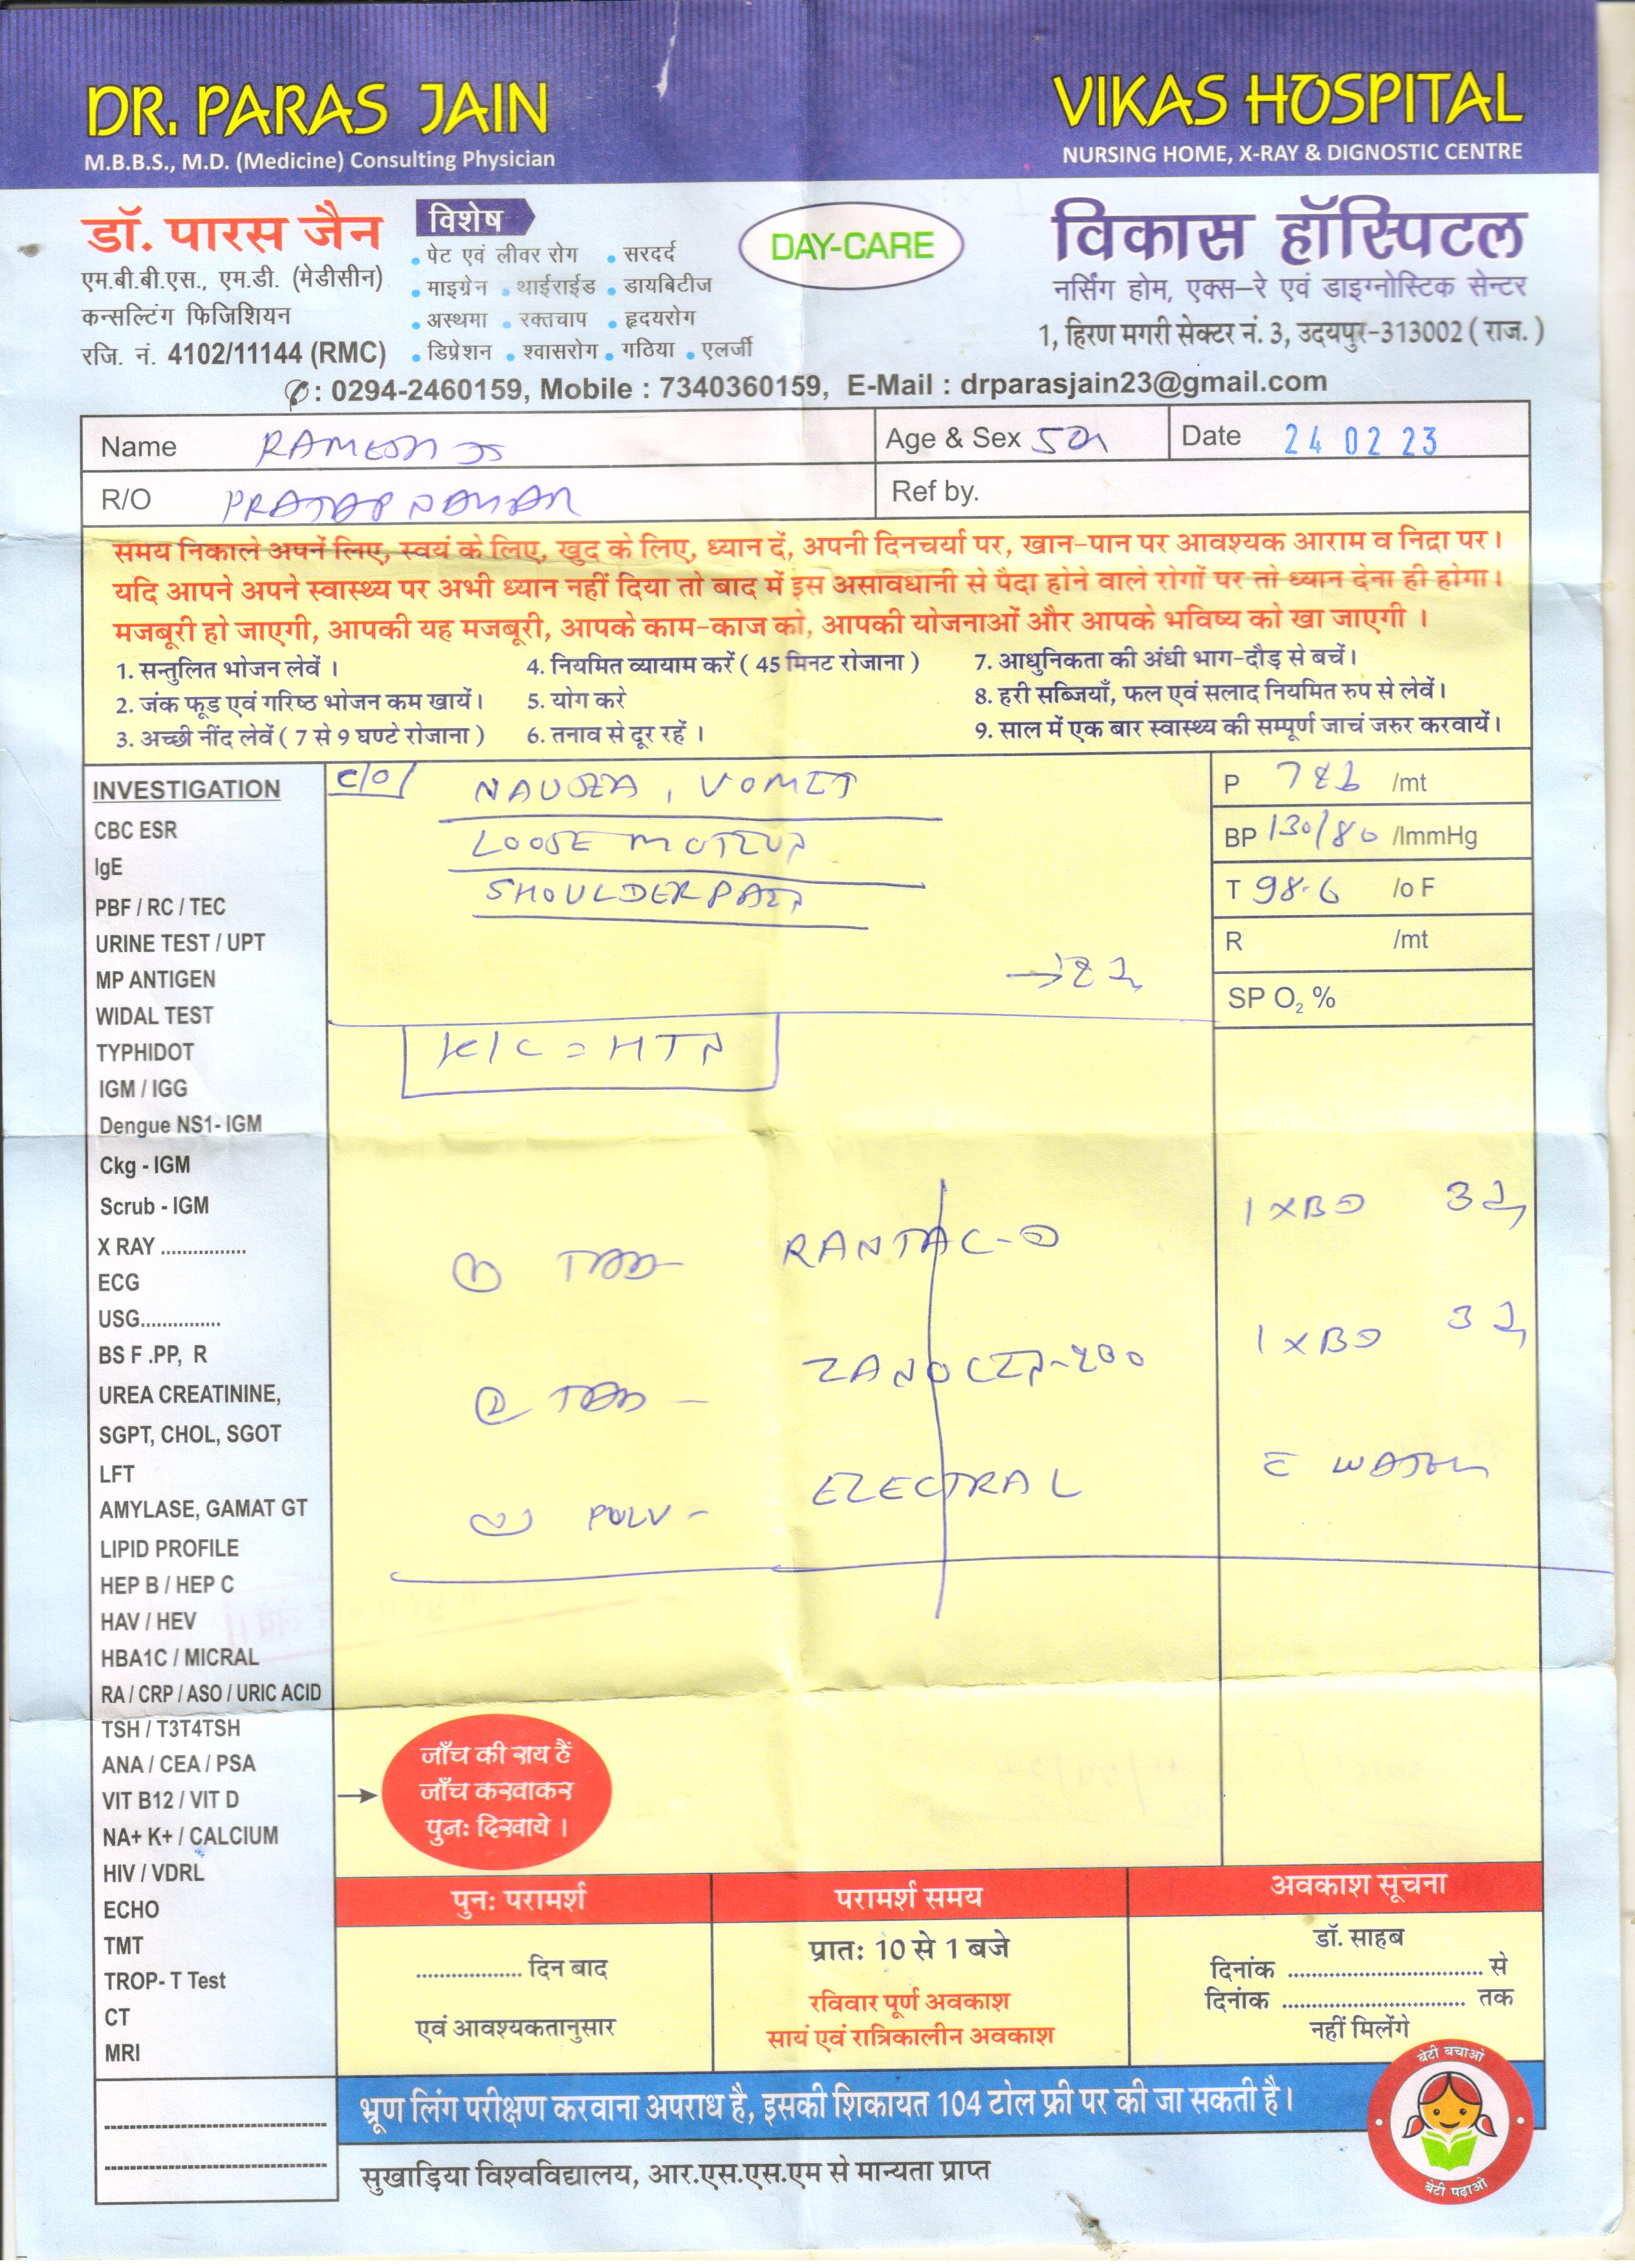 DR. PARAS JAIN
M.B.B.S., M.D. (Medicine) Consulting Physician
VIKAS HOSPITAL
NURSING HOME, X-RAY & DIGNOSTIC CENTRE
डॉ. पारस जैन
एम.बी.बी.एस., एम.डी. (मेडीसीन)
कन्सल्टिंग फिजिशियन
रजि. नं. 4102/11144 (RMC)
विशेष
• पेट एवं लीवर रोग • सरदर्द
• माइग्रेन • थाईराईड • डायबिटीज
• अस्थमा • रक्तचाप • हृदयरोग
• डिप्रेशन • श्वासरोग • गठिया • एलर्जी
DAY-CARE
विकास हॉस्पिटल
नर्सिंग होम, एक्स-रे एवं डाइग्नोस्टिक सेन्टर
1, हिरण मगरी सेक्टर नं. 3, उदयपुर-313002 ( राज. )
: 0294-2460159, Mobile : 7340360159, E-Mail : drparasjain23@gmail.com
Name RAMESH Age & Sex 50 Date 24 02 23
R/O PRATAP NAGAR Ref by.
समय निकाले अपनें लिए, स्वयं के लिए, खुद के लिए, ध्यान दें, अपनी दिनचर्या पर, खान-पान पर आवश्यक आराम व निद्रा पर।
यदि आपने अपने स्वास्थ्य पर अभी ध्यान नहीं दिया तो बाद में इस असावधानी से पैदा होने वाले रोगों पर तो ध्यान देना ही होगा।
मजबूरी हो जाएगी, आपकी यह मजबूरी, आपके काम-काज को, आपकी योजनाओं और आपके भविष्य को खा जाएगी ।
1. सन्तुलित भोजन लेवें । 4. नियमित व्यायाम करें ( 45 मिनट रोजाना ) 7. आधुनिकता की अंधी भाग-दौड़ से बचें।
2. जंक फूड एवं गरिष्ठ भोजन कम खायें। 5. योग करे 8. हरी सब्जियाँ, फल एवं सलाद नियमित रुप से लेवें।
3. अच्छी नींद लेवें ( 7 से 9 घण्टे रोजाना ) 6. तनाव से दूर रहें । 9. साल में एक बार स्वास्थ्य की सम्पूर्ण जाचं जरुर करवायें।
INVESTIGATION
CBC ESR
IgE
PBF / RC / TEC
URINE TEST / UPT
MP ANTIGEN
WIDAL TEST
TYPHIDOT
IGM / IGG
Dengue NS1- IGM
Ckg - IGM
Scrub - IGM
X RAY ................
ECG
USG...............
BS F .PP, R
UREA CREATININE,
SGPT, CHOL, SGOT
LFT
AMYLASE, GAMAT GT
LIPID PROFILE
HEP B / HEP C
HAV / HEV
HBA1C / MICRAL
RA / CRP / ASO / URIC ACID
TSH / T3T4TSH
ANA / CEA / PSA
VIT B12 / VIT D
NA+ K+ / CALCIUM
HIV / VDRL
ECHO
TMT
TROP- T Test
CT
MRI
C/O NAUSEA, VOMIT
LOOSE MOTION
SHOULDER PAIN
K/C = HTN
P /mt
BP 130/80 /lmmHg
T 98.6 /o F
R /mt
SP O₂ %
① TAB RANTAC-D 1 x BD 3
② TAB - ZANOCIN-200 1 x BD 3
③ PULV - ELECTRAL c̄ WATER
जाँच की राय हैं
जाँच करवाकर
पुनः दिखाये ।
पुनः परामर्श
.................. दिन बाद
एवं आवश्यकतानुसार
परामर्श समय
प्रातः 10 से 1 बजे
रविवार पूर्ण अवकाश
सायं एवं रात्रिकालीन अवकाश
अवकाश सूचना
डॉ. साहब
दिनांक ................................ से
दिनांक .............................. तक
नहीं मिलेंगे
भ्रूण लिंग परीक्षण करवाना अपराध है, इसकी शिकायत 104 टोल फ्री पर की जा सकती है।
बेटी बचाओ
बेटी पढ़ाओ
सुखाड़िया विश्वविद्यालय, आर.एस.एस.एम से मान्यता प्राप्त